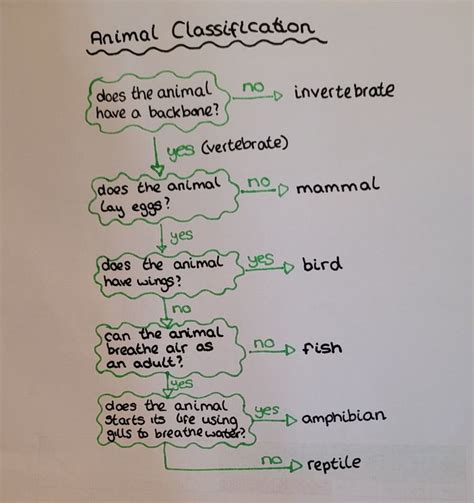 Animal Classification
does the animal
have a backbone?
no
invertebrate
yes (vertebrate)
does the animal
lay eggs?
no
mammal
yes
does the animal
have wings?
yes
bird
no
can the animal
breathe air as
an adult?
no
fish
yes
does the animal
starts its life using
gills to breathe water?
yes
amphibian
no
reptile